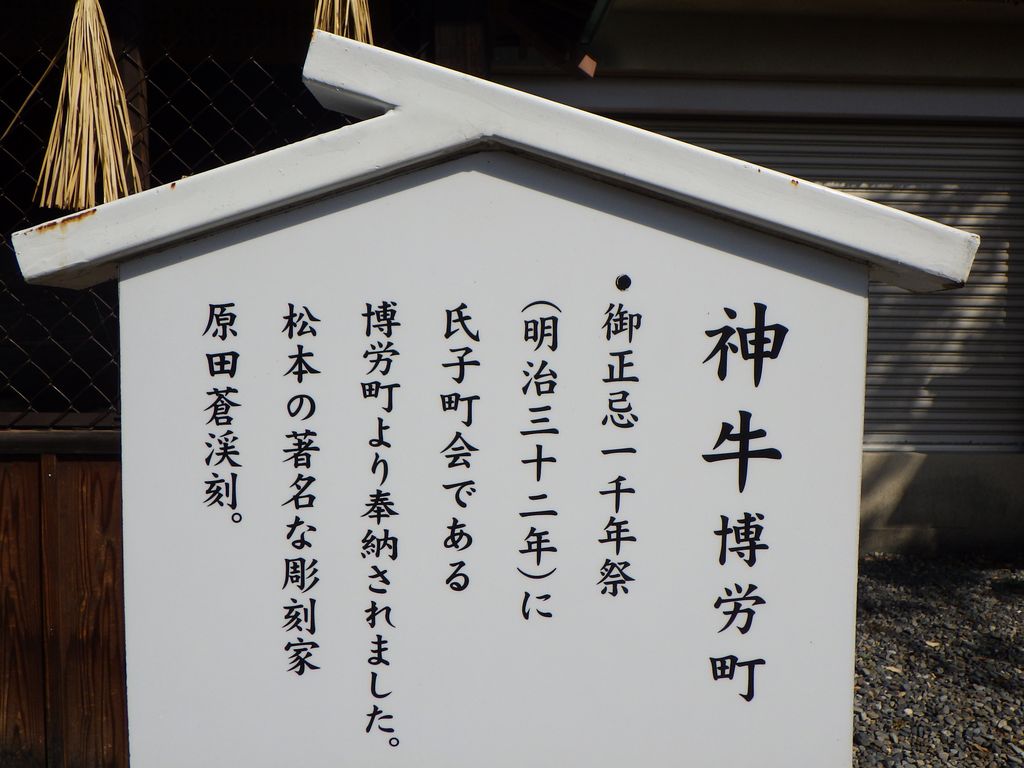 神牛博労町
御正忌一千年祭
(明治三十二年)に
氏子町会である
博労町より奉納されました。
松本の著名な彫刻家
原田蒼渓刻。